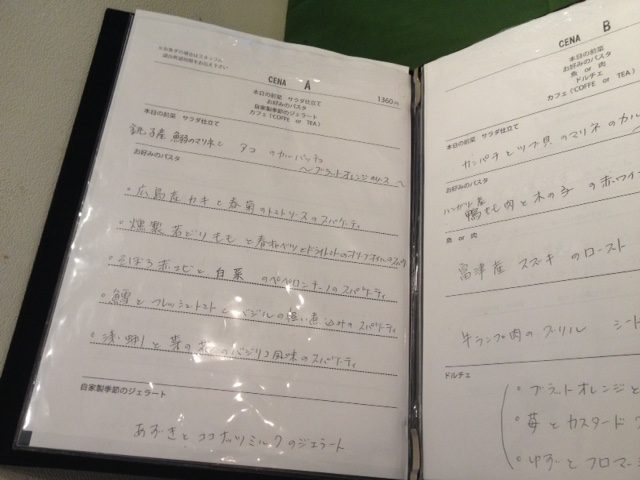 CENA A
1360円
本日の前菜 サラダ仕立て
お好みのパスタ
自家製季節のジェラート
カフェ(COFFE or TEA)
本日の前菜 サラダ仕立て
銚子産 鰯のマリネと タコ のカルパッチョ
〜ブラッドオレンジのソース〜
お好みのパスタ
・広島産カキと春菊のトマトソースのスパゲティ
・燻製 若どりももと春キャベツとドライトマトのオリーブオイルのスパゲティ
白菜 のペペロンチーノのスパゲティ
・鱈とフレッシュトマトとバジルの煮込みのスパゲティ
・浅蜊と菜の花のバジリコ風味のスパゲティ
自家製季節のジェラート
あずきとココナッツミルクのジェラート
CENA B
本日の前菜
お好みのパスタ
魚 or 肉
ドルチェ
カフェ(COFFE or TEA)
本日の前菜 サラダ仕立て
カンパチとツブ貝のマリネのカル
お好みのパスタ
ハンガリー産 鴨もも肉と木の子の赤ワイン
魚 or 肉
富津産 スズキ のロースト
牛ランプ肉のグリル
ドルチェ
・ブラッドオレンジと
・苺とカスタード
・ゆずとフロマー